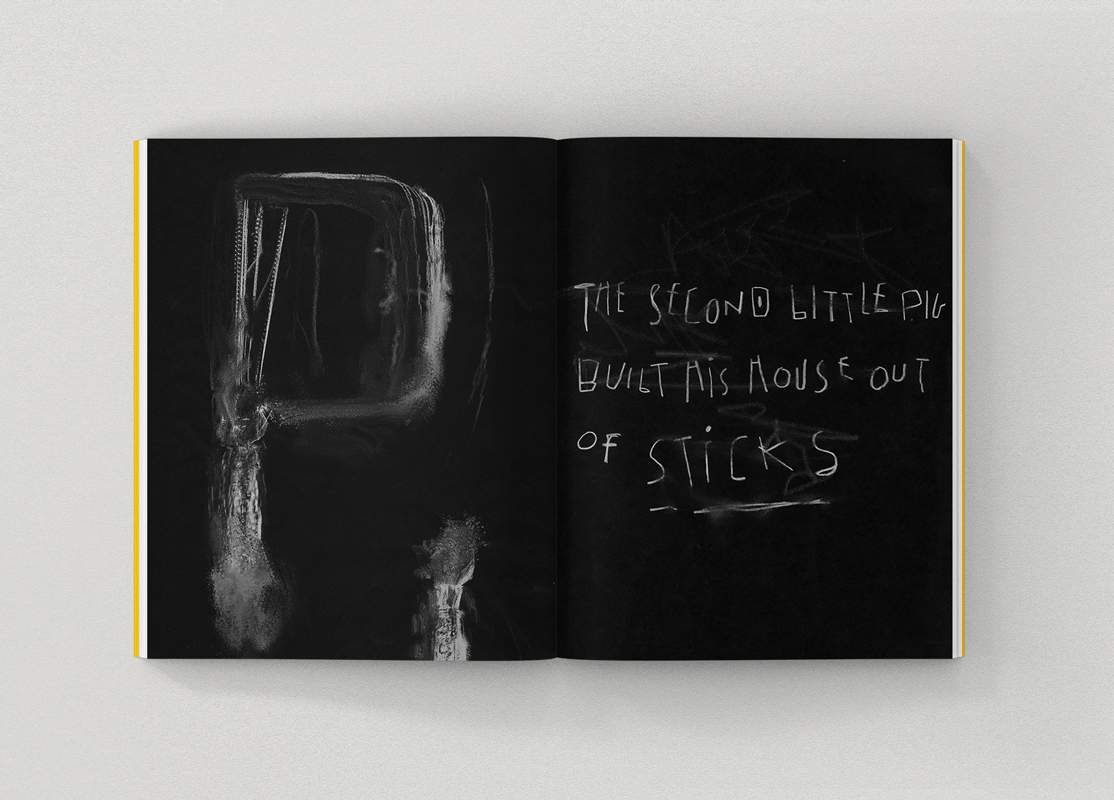 THE SECOND LITTLE PIG
BUILT HiS HOUSE OUT
OF STiCKS